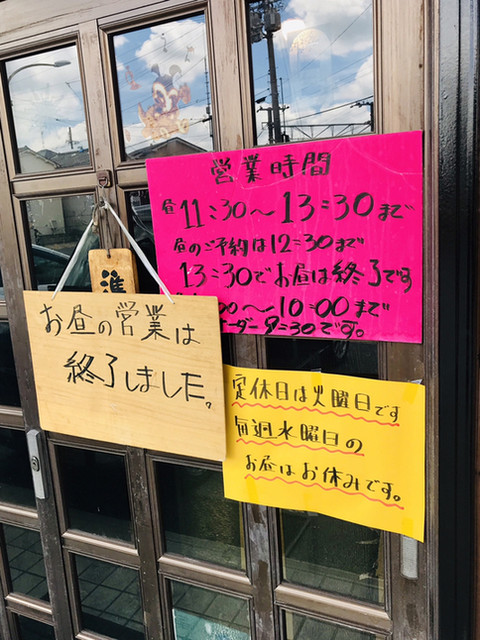 営業時間
昼11:30〜13:30まで
昼のご予約は12:30まで
13:30でお昼は終了です
00〜10:00まで
ーダー9:30です。
準
お昼の営業は
終了しました。
定休日は火曜日です
毎週水曜日の
お昼はお休みです。